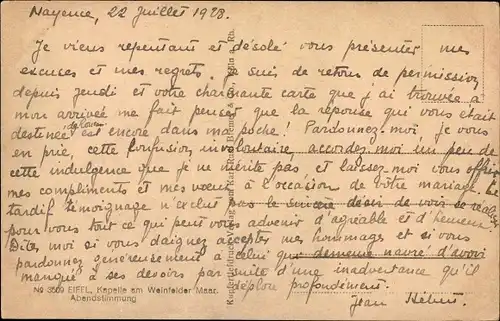 Mayence, 22 Juillet 1928.
Je viens repentant et désolé vous présenter mes
excuses et mes regrets. Je suis de retour de permission
depuis jeudi et votre charmante carte que j'ai trouvée à
mon arrivée me fait penser que la réponse qui vous était
destinée est encore dans ma poche! Pardonnez-moi, je vous
en prie, cette confusion involontaire, accordez moi un peu de
cette indulgence que je ne mérite pas et laissez moi vous offrir
mes compliments et mes vœux à l'occasion de votre mariage. Ce
tardif témoignage n'exclut pas le sincère désir de voir se réaliser
pour vous tout ce qui peut vous advenir d'agréable et d'heureux.
Dites moi si vous daignez accepter mes hommages et si vous
pardonnez généreusement à celui que demeure navré d'avoir
manqué à ses devoirs par suite d'une inadvertance qu'il
déplore profondément.
Jean
No 3509 EIFEL, Kapelle am Weinfelder Maar.
Abendstimmung